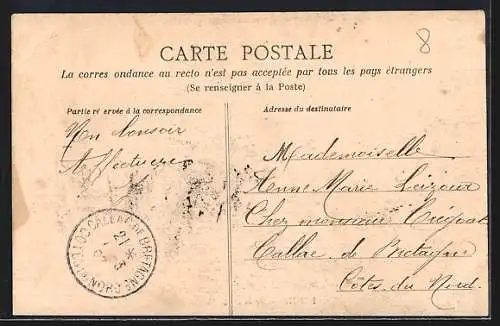 8
CARTE POSTALE
La corres ondance au recto n'est pas acceptée par tous les pays étrangers
(Se renseigner à la Poste)
Partie ré ervée à la correspondance
Adresse du destinataire
Un bonsoir
Affectueux
Mademoiselle
Anne Marie
Chez monsieur
Callac de Bretagne
Côtes du Nord.
CALLAC-DE-BRETAGNE